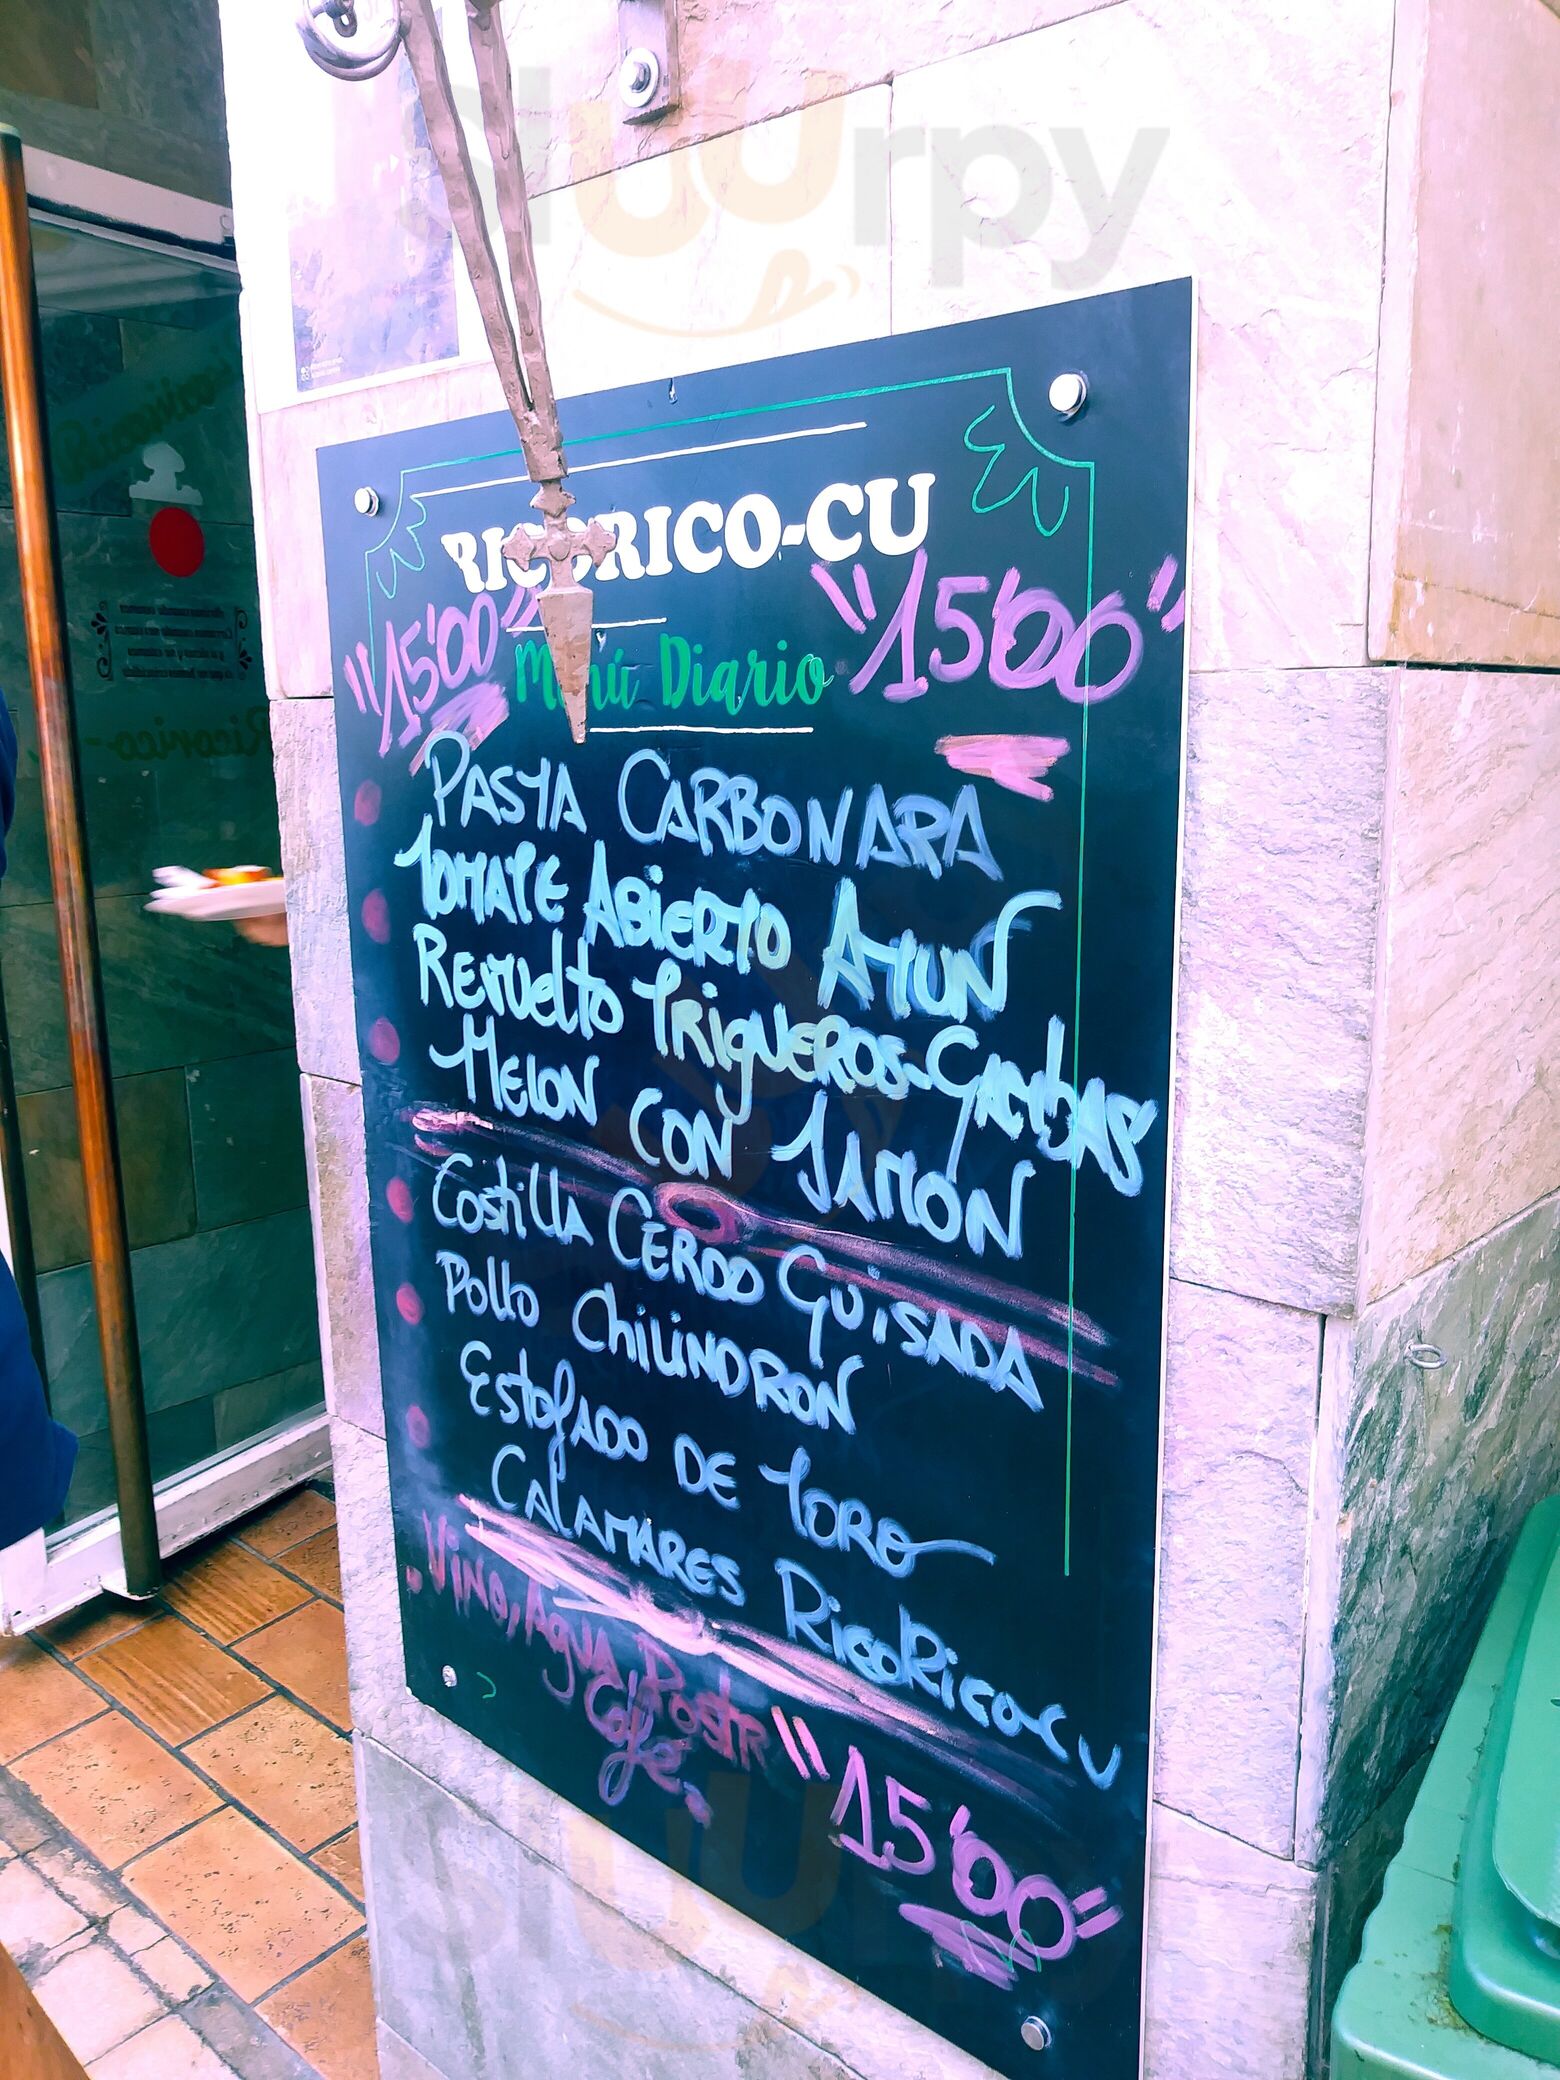 sluurpy
RICORICO-CU
"15'00" "15'00"
Menú Diario
PASTA CARBONARA
TOMATE ABIERTO ATUN
REVUELTO TRIGUEROS-GAMBAS
MELON CON JAMON
COSTILLA CERDO GUISADA
POLLO CHILINDRON
ESTOFADO DE TORO
CALAMARES RICORICO-CU
VINO, AGUA, POSTR
Cafe. "15'00"